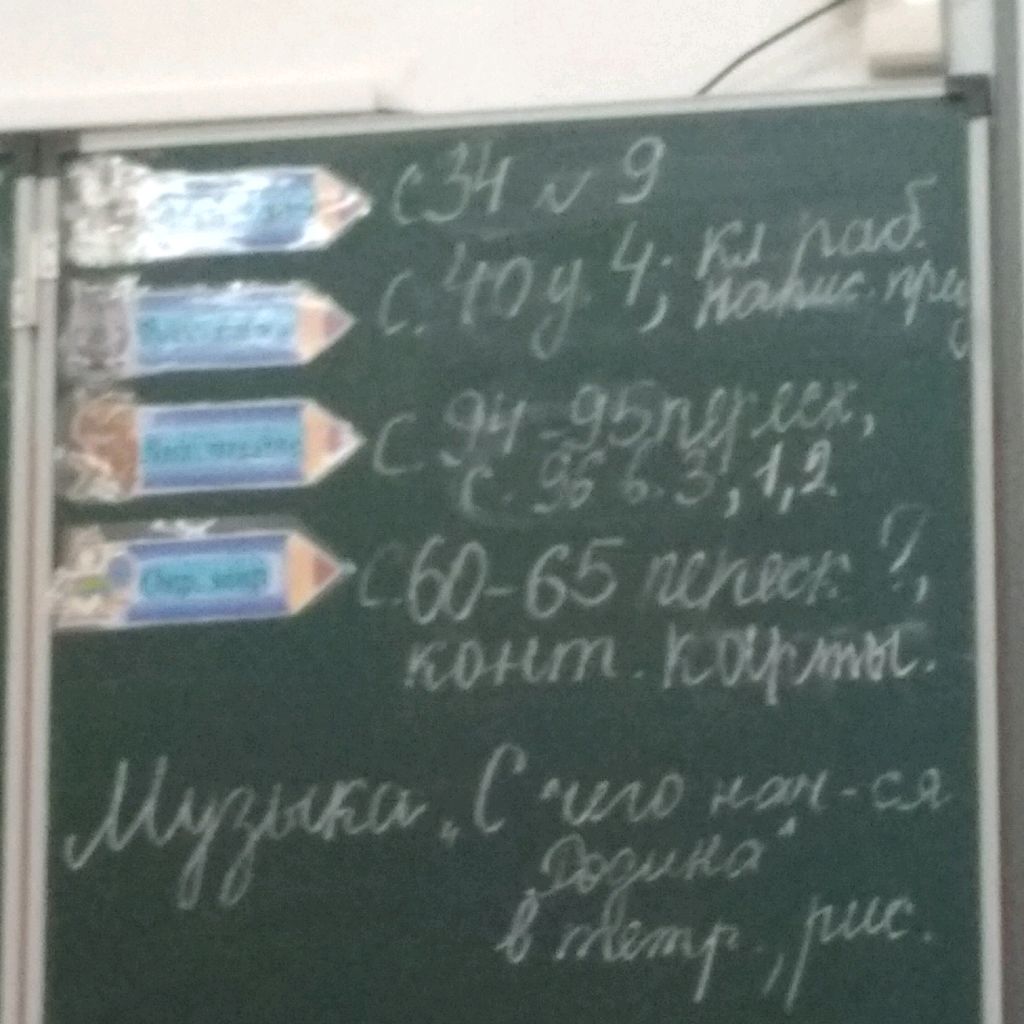 с 34 № 9
с. 40 у. 4; кл раб.
напис. пред
с 94-95 переск,
с. 96 в. 3, 1, 2
Окр. мир
с. 60-65 переск ?,
конт. карты.
Музыка „С чего нач-ся
Родина“
в тетр., рис.